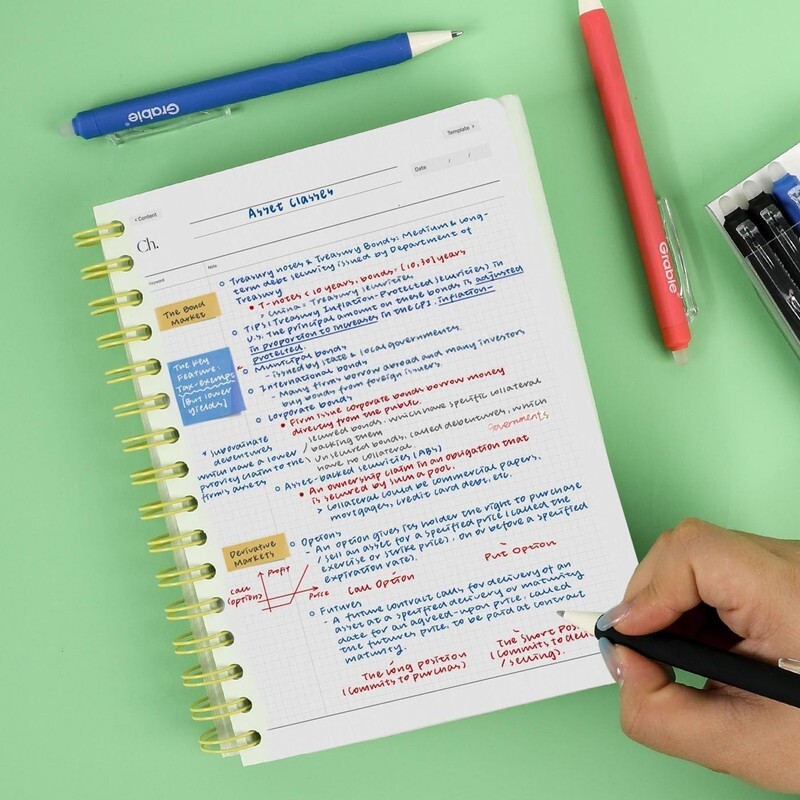 Grable
Grable
Template >
Date / /
< Content
Asset Classes
Ch.
Keyword
Note
The Bond
Market
The Key
Feature:
Tax-exempt
[But lower
yields]
* subordinate
debentures
which have a lower
priority claim to the
firm's assets
Derivative
Markets
Profit
Call
(option)
Price
Treasury notes & Treasury Bonds: Medium & long-
term debt security issued by Department of
Treasury
• T-notes < 10 years, bonds: [10,30] years
> China = Treasury securities
TIPS: (Treasury Inflation-Protected Securities) in
U.S. The principal amount on these bonds is adjusted
in proportion to increases in the CPI. Inflation-
protected.
Municipal bonds
- issued by state & local governments.
International bonds
- Many firms borrow abroad and many investors
buy bonds from foreign issuers.
Corporate bonds
• Firm issue corporate bonds borrow money
directly from the public.
/ secured bonds, which have specific collateral
backing them
/ Unsecured bonds, called debentures, which
have no collateral.
governments
Asset-backed securities (ABS)
• An ownership claim in an obligation that
is secured by such a pool.
> Collateral could be commercial papers,
mortgages, credit card debt, etc.
Options
- An option gives its holder the right to purchase
/ sell an asset for a specified price (called the
exercise or strike price), on or before a specified
expiration rate).
Call Option
Put Option
Futures
- A future contract calls for delivery of an
asset at a specified delivery or maturity
date for an agreed-upon price, called
the futures price, to be paid at contract
maturity.
The long position
(commits to purchas)
The short pos
(commits to deli
/ selling).